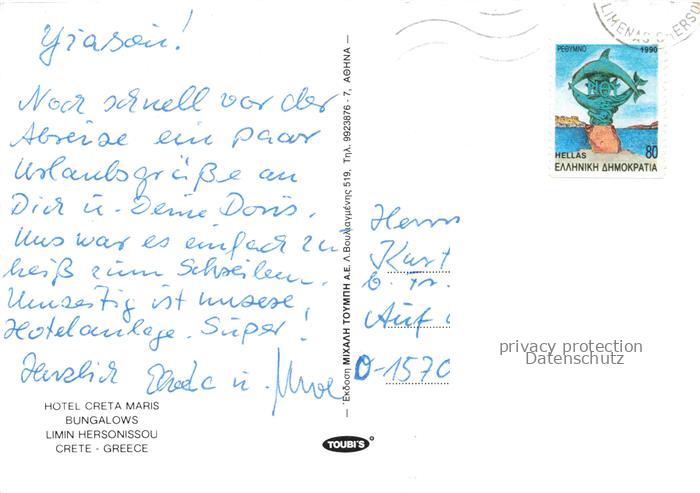 Yiasou!
Noch schnell vor der
Abreise ein paar
Urlaubsgrüße an
Dich u. Deine Doris.
Uns war es einfach zu
heiß zum Schreiben.
Umseitig ist unsere
Hotelanlage. Super!
Herzlich u.
HOTEL CRETA MARIS
BUNGALOWS
LIMIN HERSONISSOU
CRETE - GREECE
Έκδοση ΜΙΧΑΛΗ ΤΟΥΜΠΗ Α.Ε. Λ. Βουλιαγμένης 519, Τηλ. 9923876 - 7, ΑΘΗΝΑ
TOUBI'S
LIMENAS CHERSO
ΡΕΘΥΜΝΟ 1990
HELLAS 80
ΕΛΛΗΝΙΚΗ ΔΗΜΟΚΡΑΤΙΑ
Herrn
Kurt
Auf
D-1570
privacy protection
Datenschutz